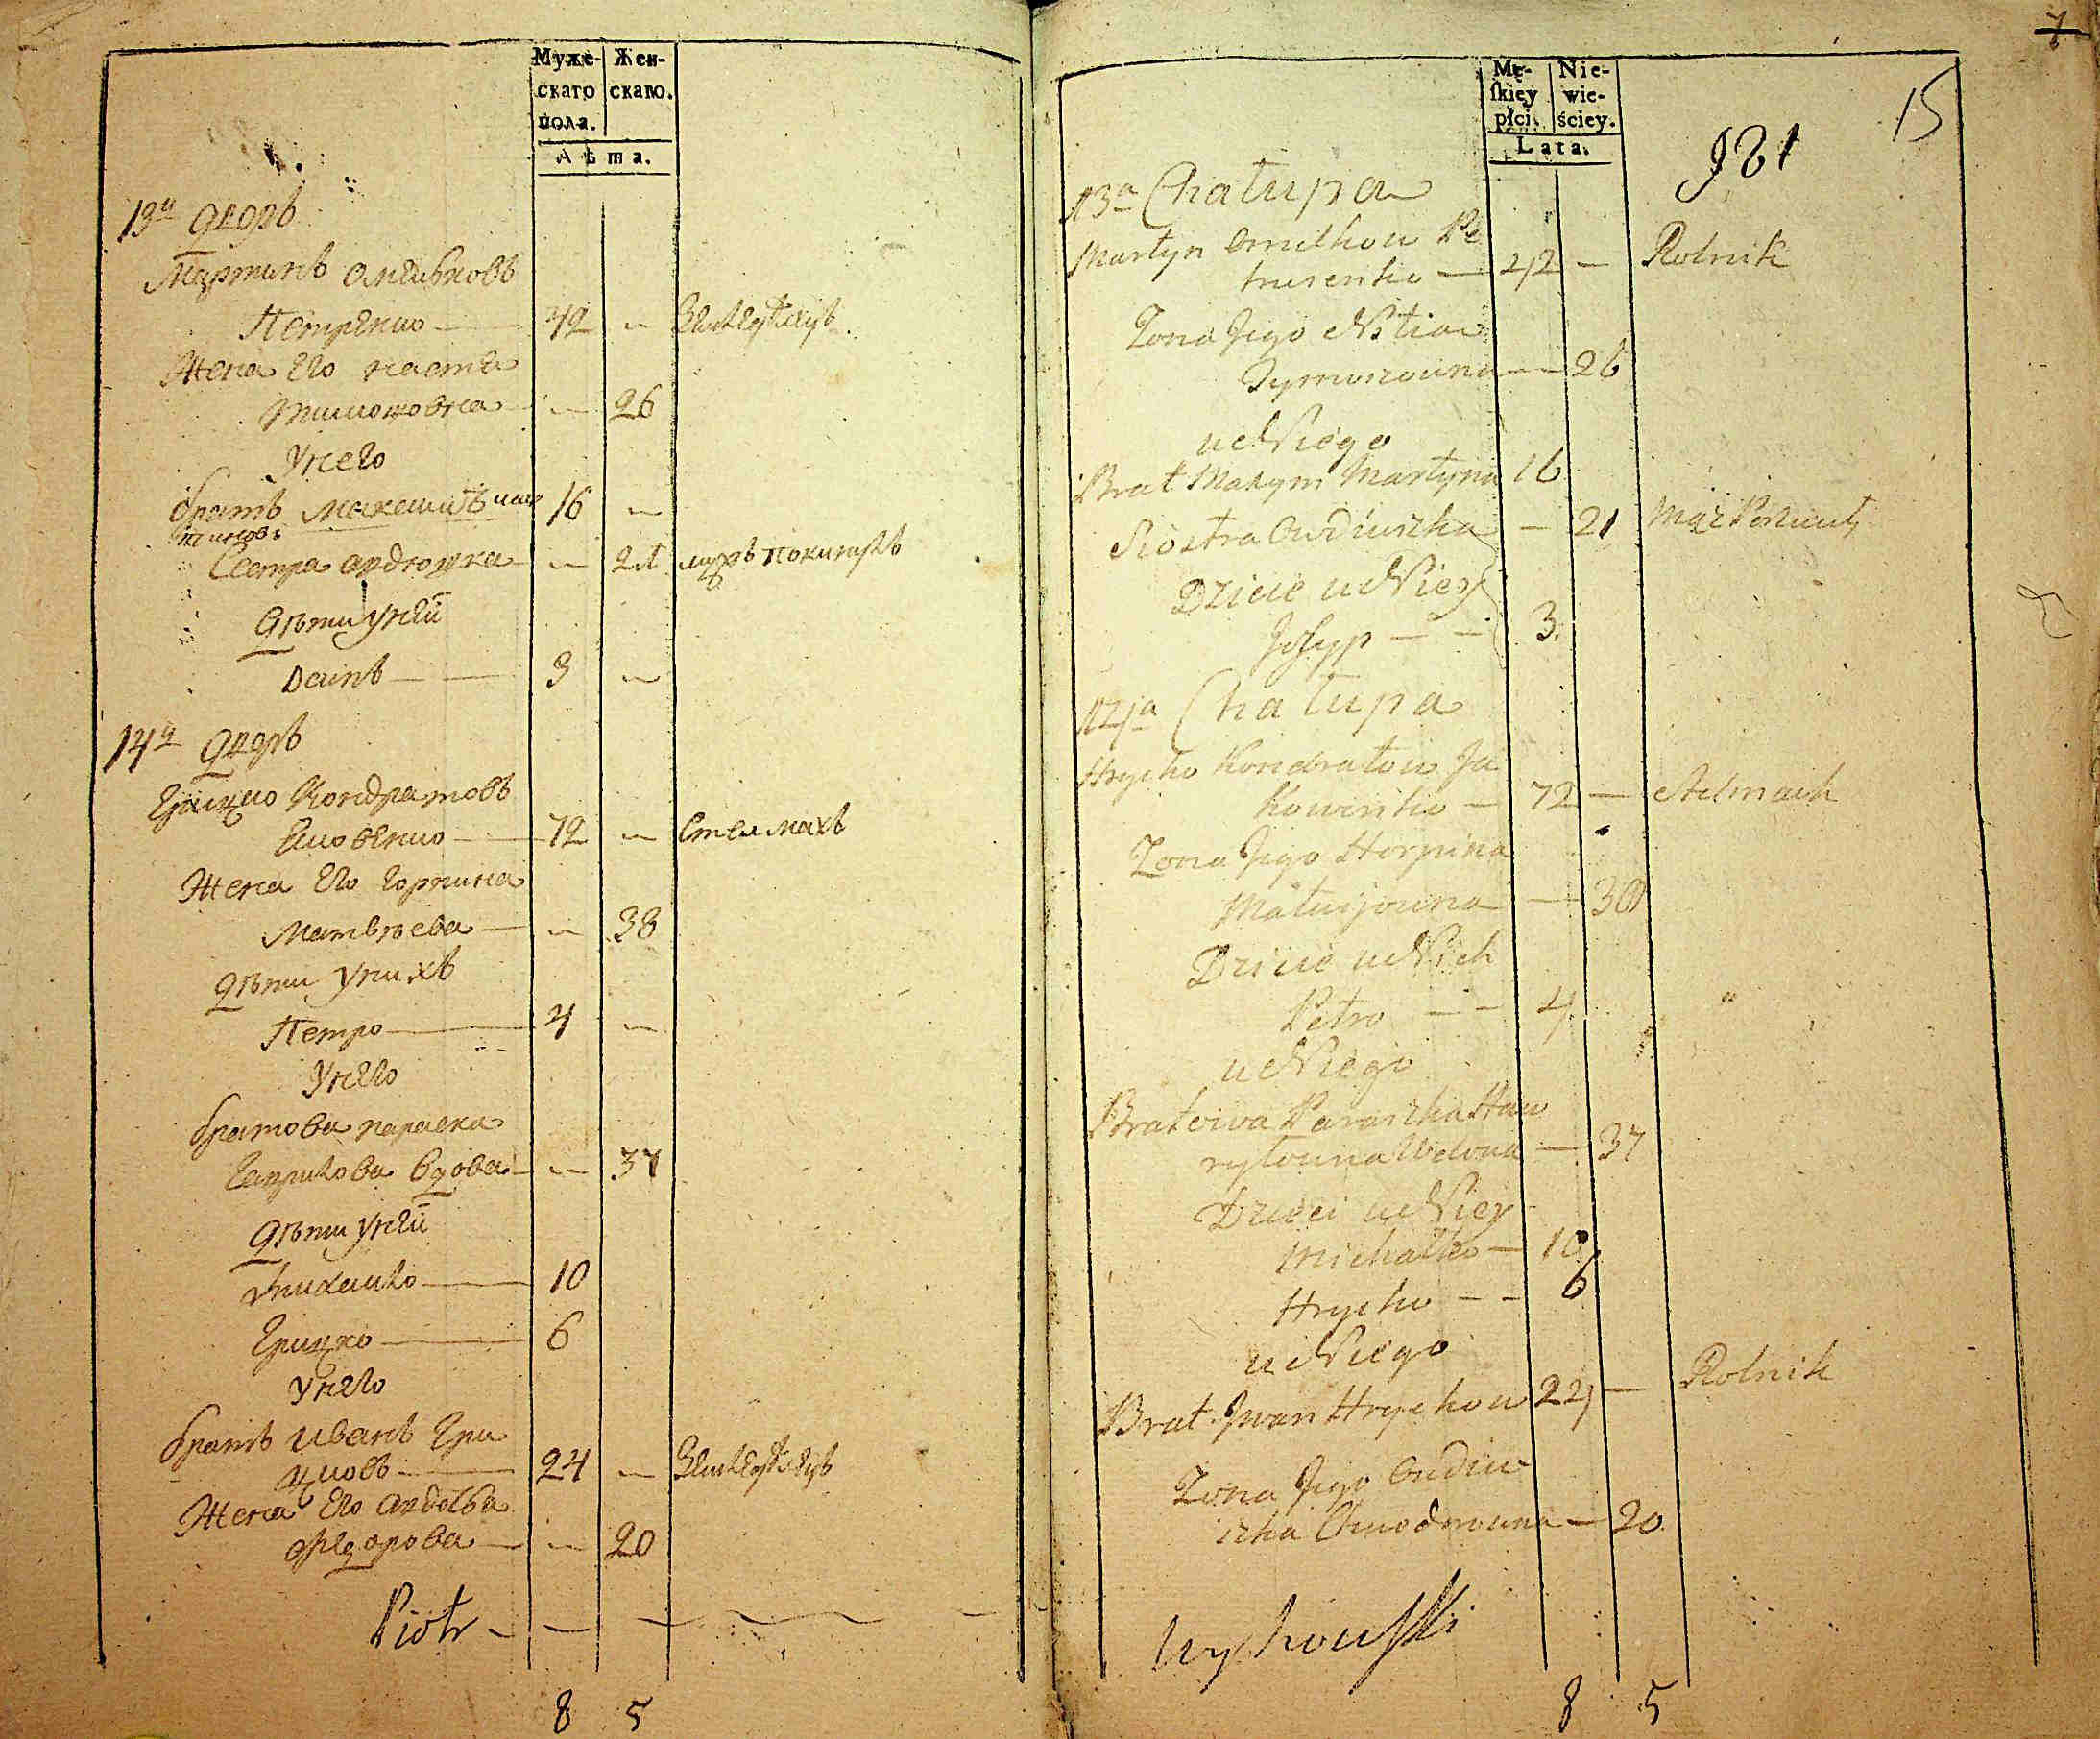 Муже-
скаго
пола.
Жен-
скаго.
Лѣта.
13й дворъ
Мартинъ Омелковъ
Петренко — 42 —
Жена Его Настя
Тимошовна — — 26
У него
братъ Максимъ 16 —
Сестра Авдюшка — — 21 мужъ покинулъ
Дѣти у ней
3 —
14й дворъ
Грицко Кондратовъ
Яковенко — 72 — Стелмахъ
Жена Его Горпина
Матвѣева — — 38
Дѣти у нихъ
Петро — 4 —
У него
братова Параска
Гаврилова вдова — — 37
Дѣти у ней
Михайло — 10
Грицко — 6
У него
братъ Иванъ Гри
цковъ — 24 —
Жена Его Авдотья
Федорова — — 20
Piotr — — — —
8 5
7
15
Mę-
ſkiey
płci.
Nie-
wie-
ściey.
Lata.
981
13a Chałupa
Martyn Omelkow Pe
trusenko — 42 — Rolnik
Zona Jego Nstia
Tymoszowna — — 26
u Niego
Brat Maxym Martynu 16
Siostra Owdiuszka — 21 Mąż
Dzicie u Niey
Josyp — — 3.
14ja Chałupa
Hrycko Kondratow Ja
kowenko — 72 — Stelmach
Zona Jego Horpina
Matwijowna — 38
Dzicie u Nich
Petro — — 4
u Niego
Bratowa Paraszka Haw
ryłowna Wdowa — 37
Dzieci u Niey
Michałko — 10
Hrycko — — 6
u Niego
Brat Jwan Hryckow 24 — Rolnik
Zona Jego Owdiu
szka Chwodorowna — 20
Wykowſki
8 5